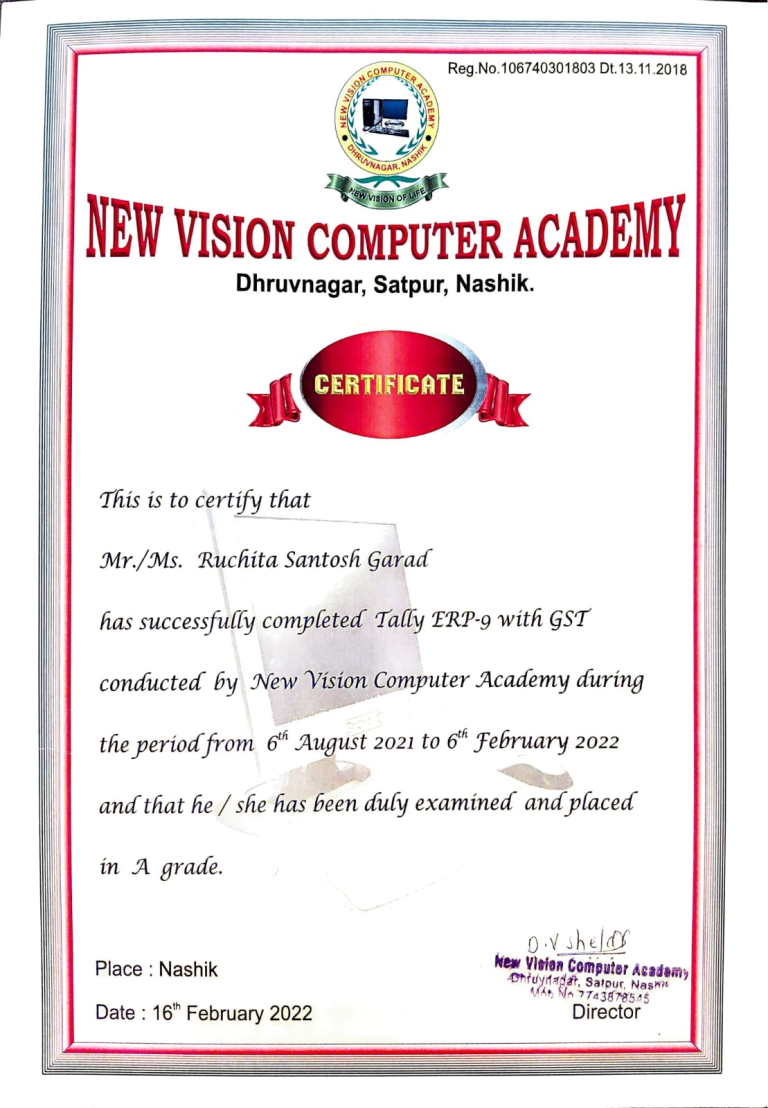 Reg.No.106740301803 Dt.13.11.2018
NEW VISION COMPUTER ACADEMY
DHRUVNAGAR, NASHIK
NEW VISION OF LIFE
NEW VISION COMPUTER ACADEMY
Dhruvnagar, Satpur, Nashik.
CERTIFICATE
This is to certify that
Mr./Ms. Ruchita Santosh Garad
has successfully completed Tally ERP-9 with GST
conducted by New Vision Computer Academy during
the period from 6th August 2021 to 6th February 2022
and that he / she has been duly examined and placed
in A grade.
D.V
New Vision Computer Academy
Dhruvnagar, Satpur, Nashik
Mob No 7743878545
Place : Nashik
Date : 16th February 2022
Director